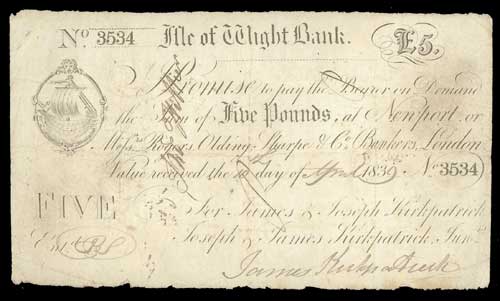 No 3534 Isle of Wight Bank. £5.
I Promise to pay the Bearer on Demand
the Sum of Five Pounds, at Newport, or
Messrs Rogers, Olding, Sharpe & Co. Bankers, London
Value received the day of April 1839 No 3534
FIVE
For James & Joseph Kirkpatrick
Joseph & James Kirkpatrick Junrs.
James Kirkpatrick